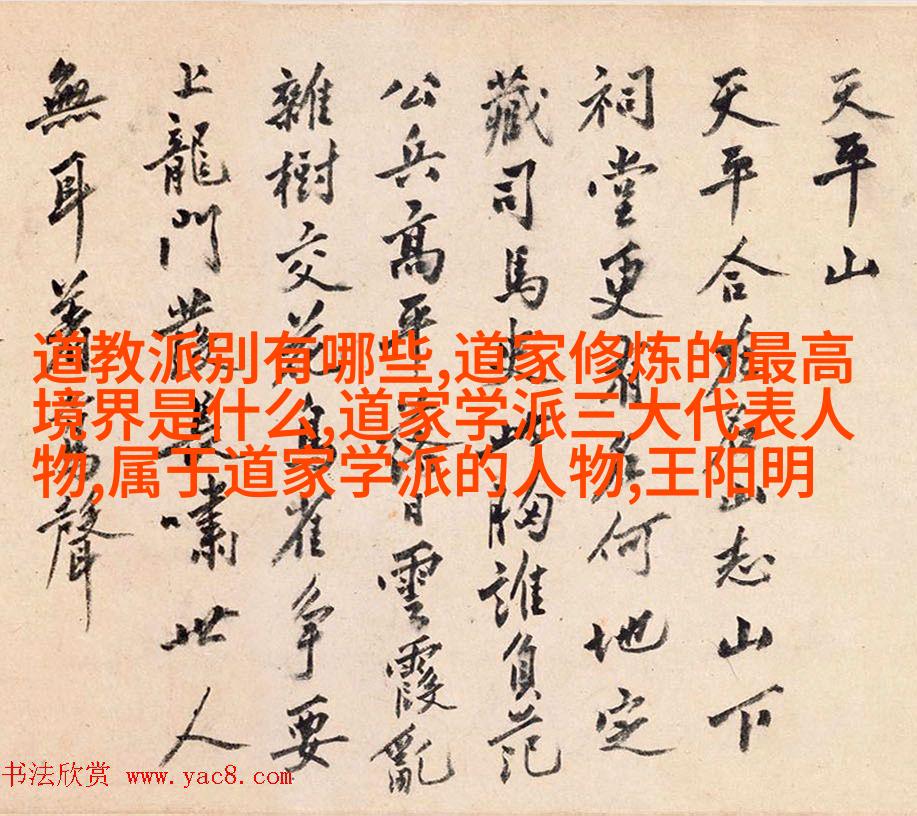 天平山
天平合山志山下
祠堂更何地定
藏司馬此胸誰負范
公兵高平落日雲霞亂
雜樹交花鳥雀爭要
上龍門發長嘯世人
無耳著聲
道教派别有哪些,道家修炼的最高
境界是什么,道家学派三大代表人
物,属于道家学派的人物,王阳明
书法欣赏 www.yac8.com